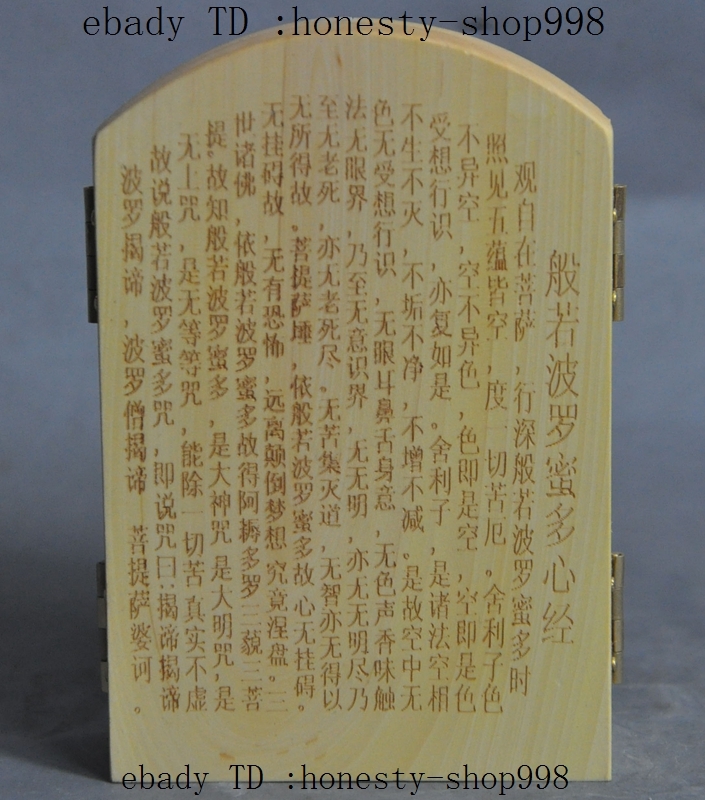 ebady TD :honesty-shop998
般若波罗蜜多心经
观自在菩萨,行深般若波罗蜜多时
照见五蕴皆空,度一切苦厄。舍利子色
不异空,空不异色,色即是空,空即是色
受想行识,亦复如是。舍利子,是诸法空相
不生不灭,不垢不净,不增不减。是故空中无
色无受想行识,无眼耳鼻舌身意,无色声香味触
法无眼界,乃至无意识界,无无明,亦无无明尽乃
至无老死,亦无老死尽。无苦集灭道,无智亦无得以
无所得故。菩提萨埵,依般若波罗蜜多故心无挂碍。
无挂碍故,无有恐怖,远离颠倒梦想究竟涅盘。三
世诸佛,依般若波罗蜜多故得阿耨多罗三藐三菩
提。故知般若波罗蜜多,是大神咒是大明咒,是
无上咒,是无等等咒,能除一切苦真实不虚
故说般若波罗蜜多咒,即说咒曰:揭谛揭谛
波罗揭谛,波罗僧揭谛 菩提萨婆诃。
ebady TD :honesty-shop998